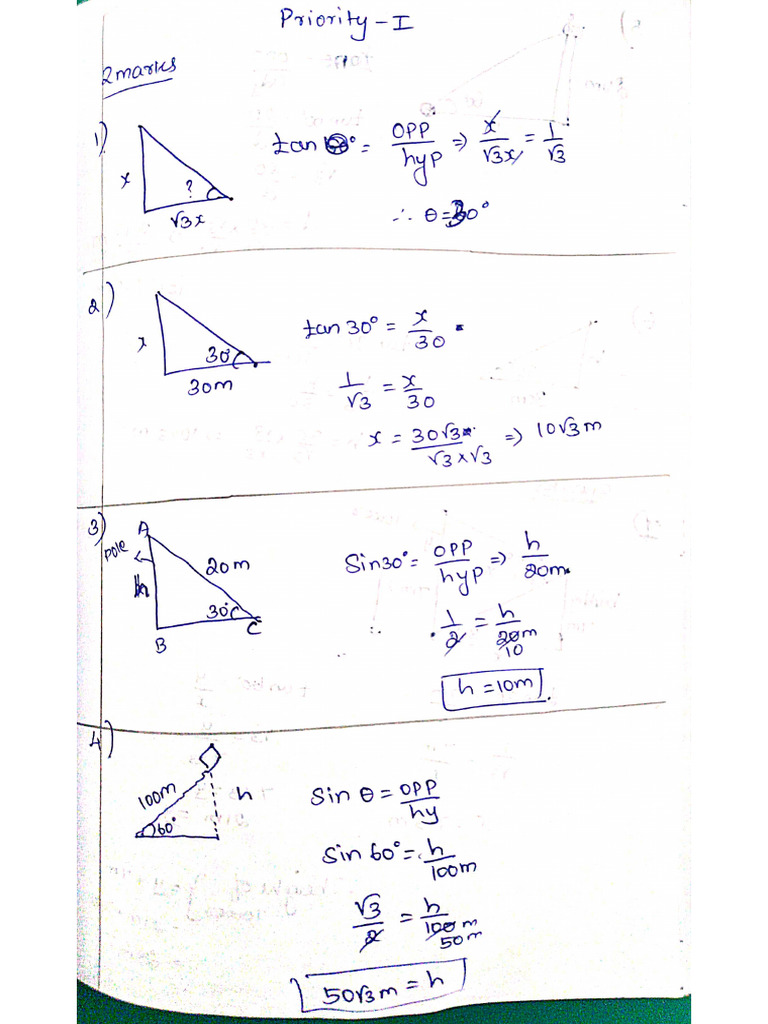 Priority - I
2 marks
1)
x
?
√3x
tan θ° = opp/hyp => x/√3x = 1/√3
∴ θ = 30°
2)
x
30°
30m
tan 30° = x/30
1/√3 = x/30
x = 30√3/√3×√3 => 10√3 m
3)
A
pole
h
20m
30°
C
B
Sin 30° = opp/hyp => h/20m
1/2 = h/20m
10
h = 10m
4)
100m
h
60°
Sin θ = opp/hy
Sin 60° = h/100m
√3/2 = h/100 m
50m
50√3 m = h